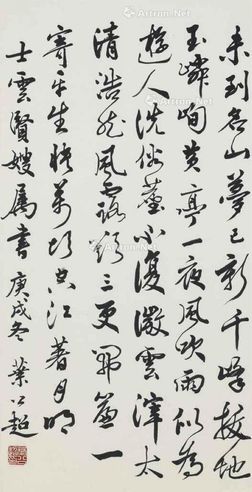 未到名山夢已新千峰拔地
玉嶙峋黃亭一夜風吹雨似為
遊人洗俗塵不復微雲滓太
清浩然風露欲三更開簾一
寄平生快萬頃空江著月明
士雲賢嫂屬書 庚戌冬 葉公超
Artron.Net